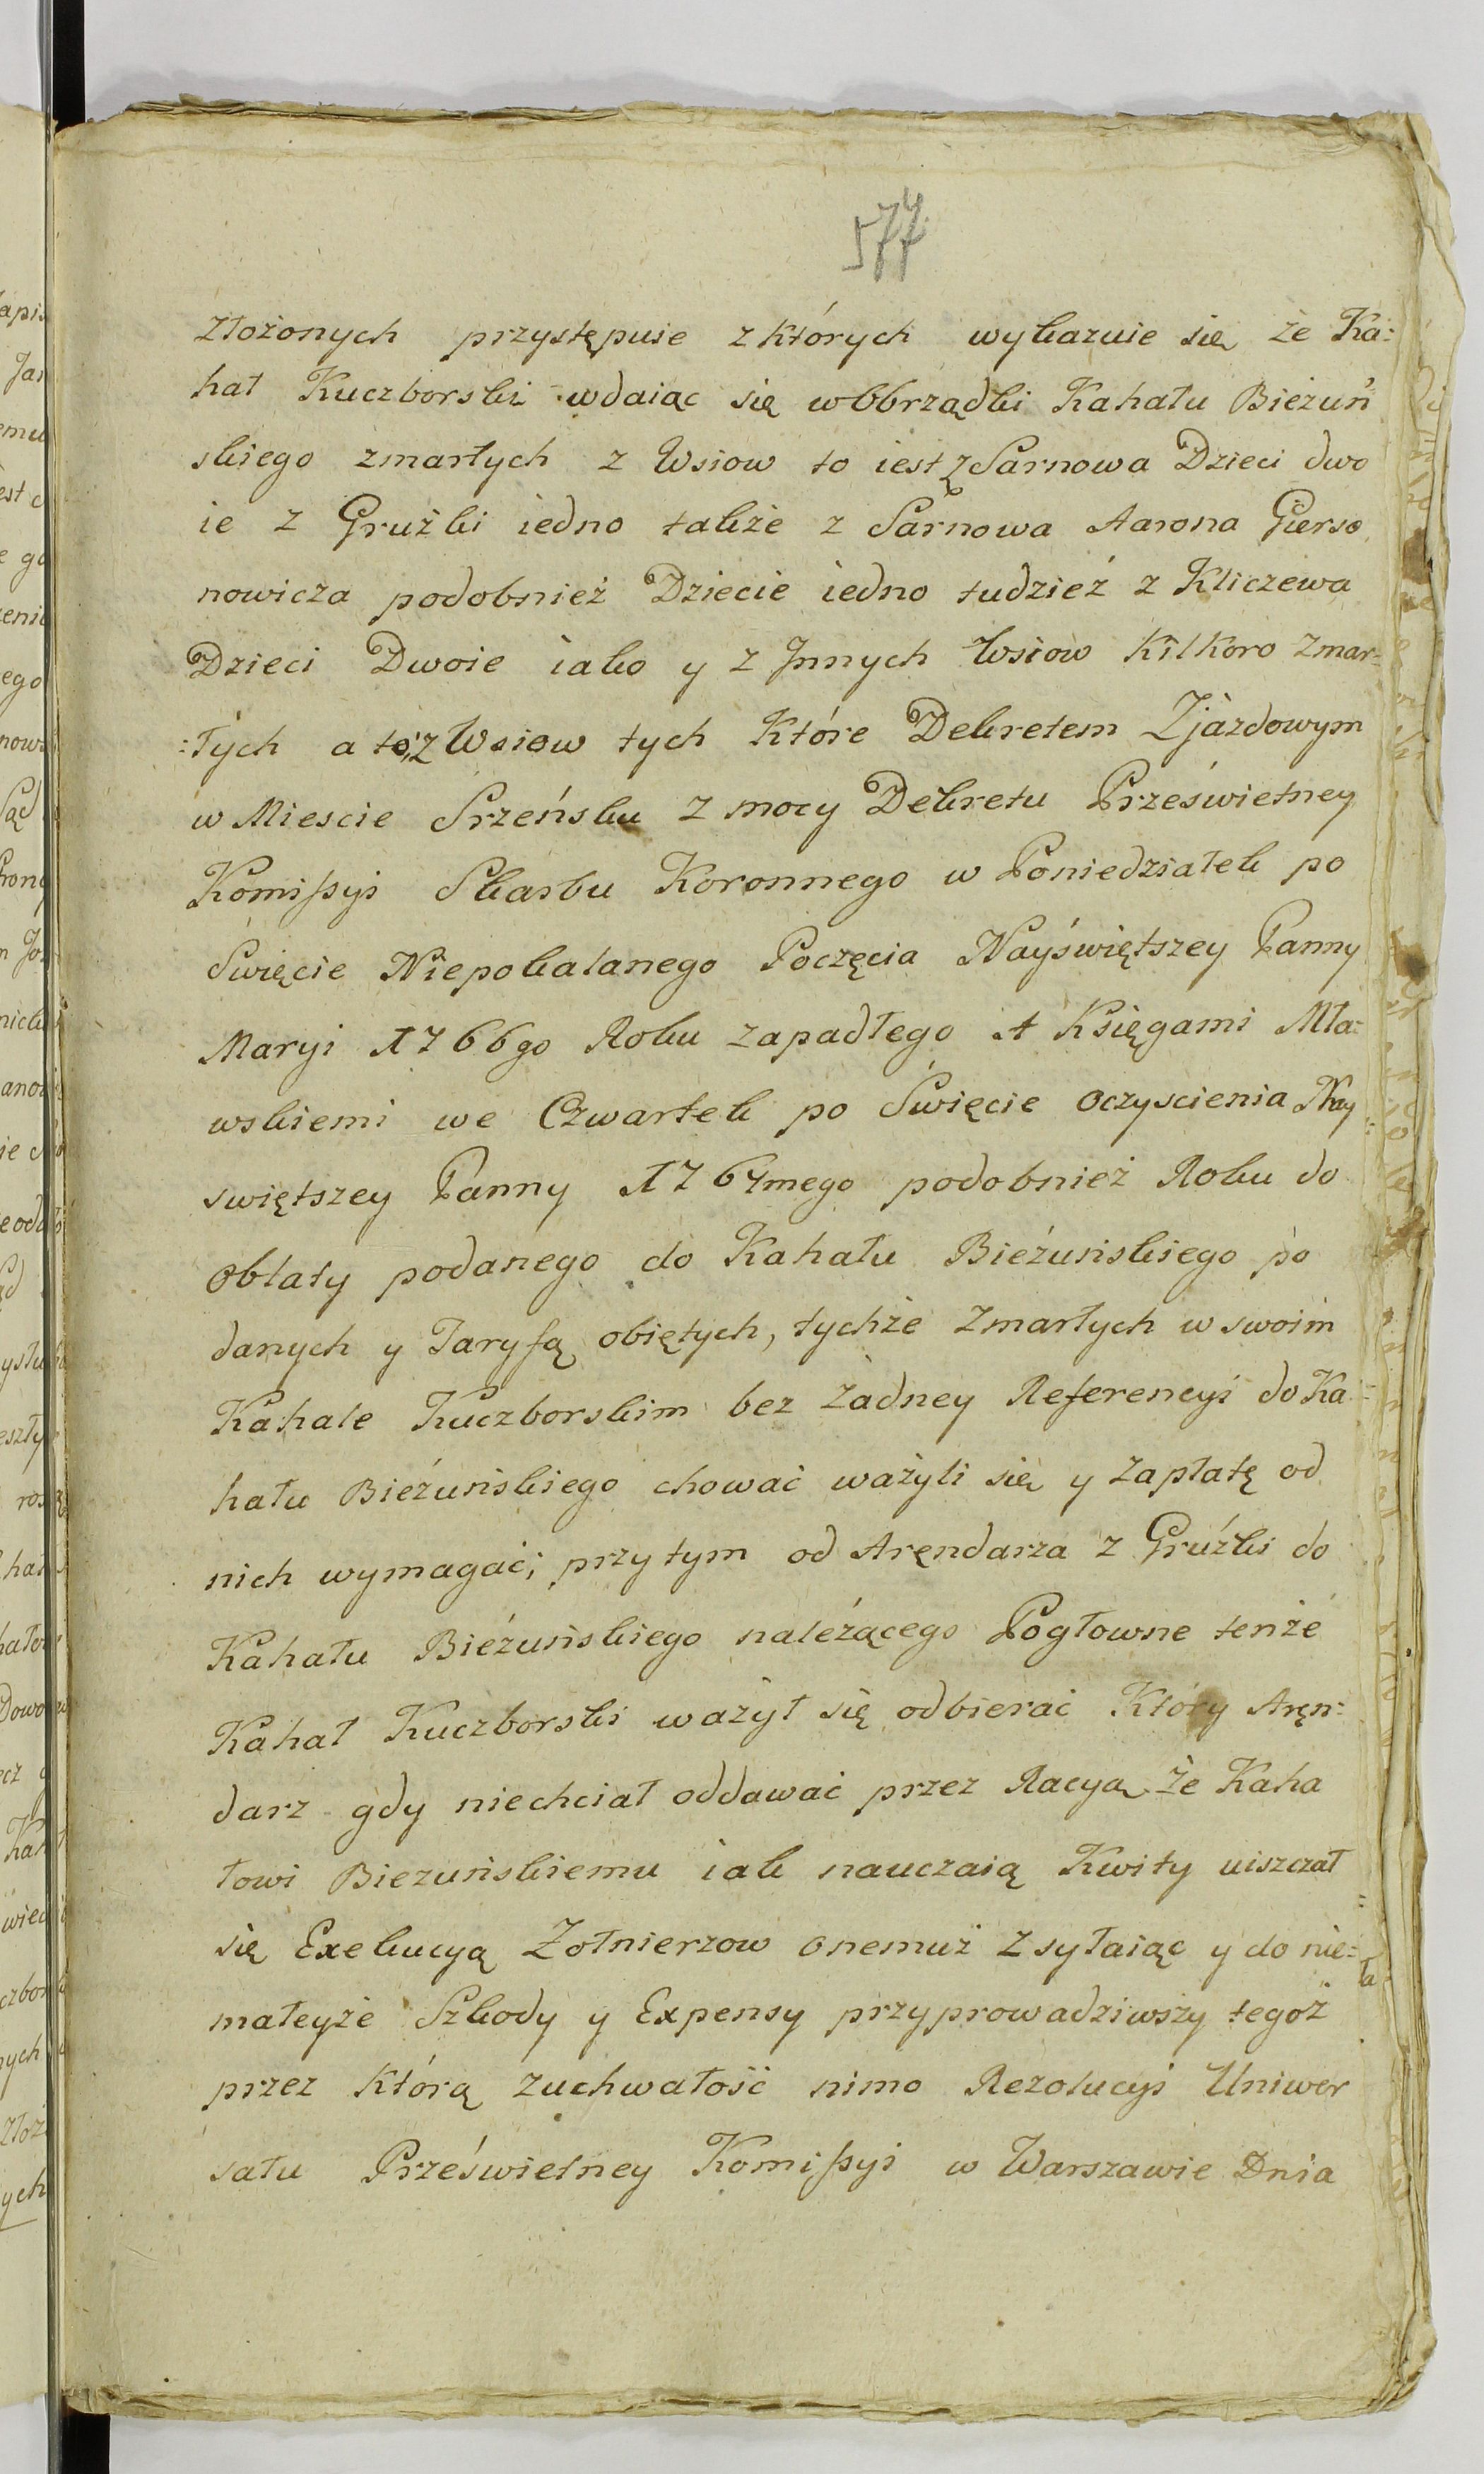 577
złożonych przystępuie z których wykazuie się że Ka=
hał Kuczborski wdaiąc się w Obrządki Kahału Bieżuń
skiego zmarłych z Wsiow to iest z Sarnowa Dzieci dwo
ie z Gruźki iedno także z Sarnowa Aarona Gierso
nowicza podobnież Dziecie iedno tudzież z Kliczewa
Dzieci Dwoie iako y z Innych Wsiow kilkoro zmar=
=łych a to z Wsiow tych które Dekretem Zjazdowym
w Miescie Szreńsku z mocy Dekretu Prześwietney
Komissyi Skarbu Koronnego w Poniedziałek po
Święcie Niepokalanego Poczęcia Nayświętszey Panny
Maryi 1766go Roku zapadłego A Księgami Mła=
wskiemi we Czwartek po Święcie Oczyscienia Nay=
swiętszey Panny 1767mego podobnież Roku do
Oblaty podanego do Kahału Bieżuńskiego po
danych y Taryfą obiętych, tychże zmarłych w swoim
Kahale Kuczborskim bez żadney Referencyi do Ka=
hału Bieżuńskiego chować ważyli się y zapłatę od
nich wymagać; przytym od Arendarza z Gruźki do
Kahału Bieżuńskiego należącego Pogłowne tenże
Kahał Kuczborski ważył się odbierać Który Aręn=
darz gdy niechciał oddawać przez Racyą że Kaha
łowi Bieżuńskiemu iak nauczaią Kwity uiszczał
się Exekucyą Żołnierzow onemuż zsyłaiąc y do nie=
małeyże Szkody y Expensy przyprowadziwszy tegoż
przez którą zuchwałość nimo Rezolucyi Uniwer
sału Prześwietney Komissyi w Warszawie Dnia